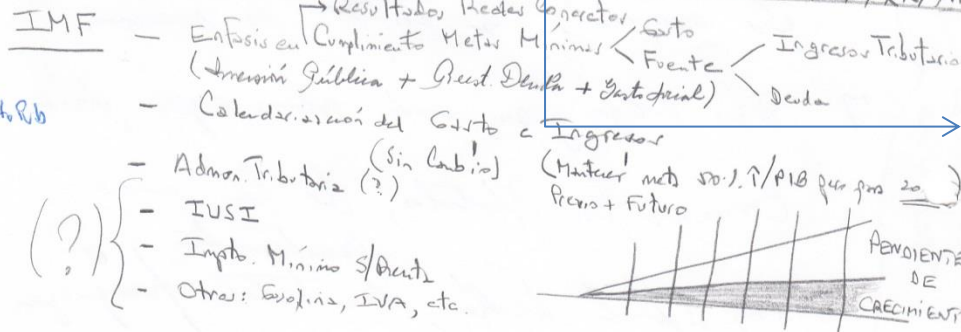 Resultados Reales Concretos
IMF - Enfasis en Cumplimiento Metas Mínimas Gasto
Fuente Ingresos Tributario
Deuda
(Inversión Pública + Deuda + Gasto
to Pub
- Calendarización del Gasto e Ingresos
- Admon. Tributaria (?) (Sin Cambio)
(Mantener meta /PIB 20
Previo + Futuro
(?)
- IUSI
- Impto. Mínimo S/Renta
- Otros: Gasolina, IVA, etc.
PENDIENTE
DE
CRECIMIENT